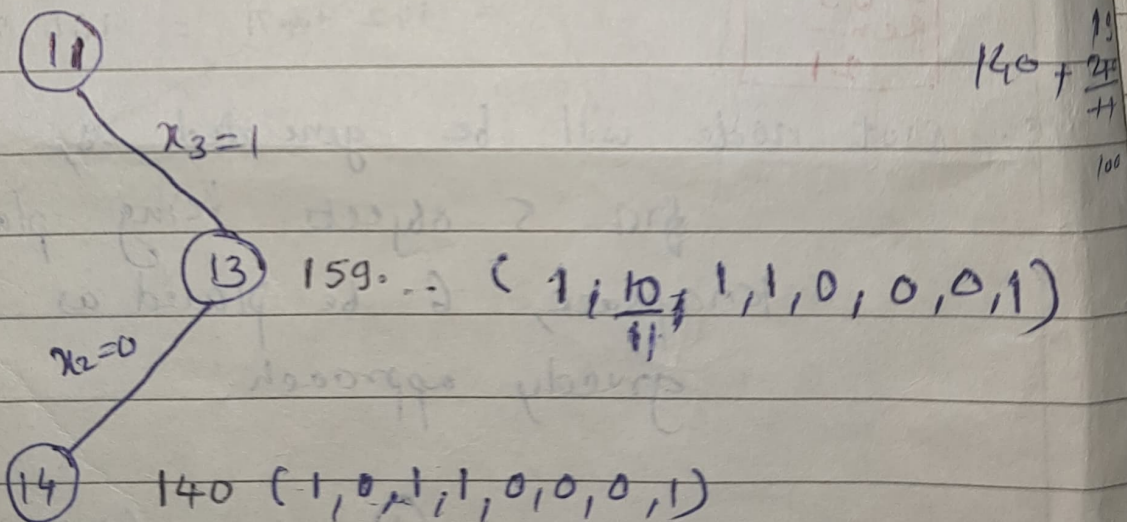 11
140 +
x₃=1
100
13 159... ( 1, 10/11, 1, 1, 0, 0, 0, 1)
x₂=0
14 140 (1, 0, 1, 1, 0, 0, 0, 1)